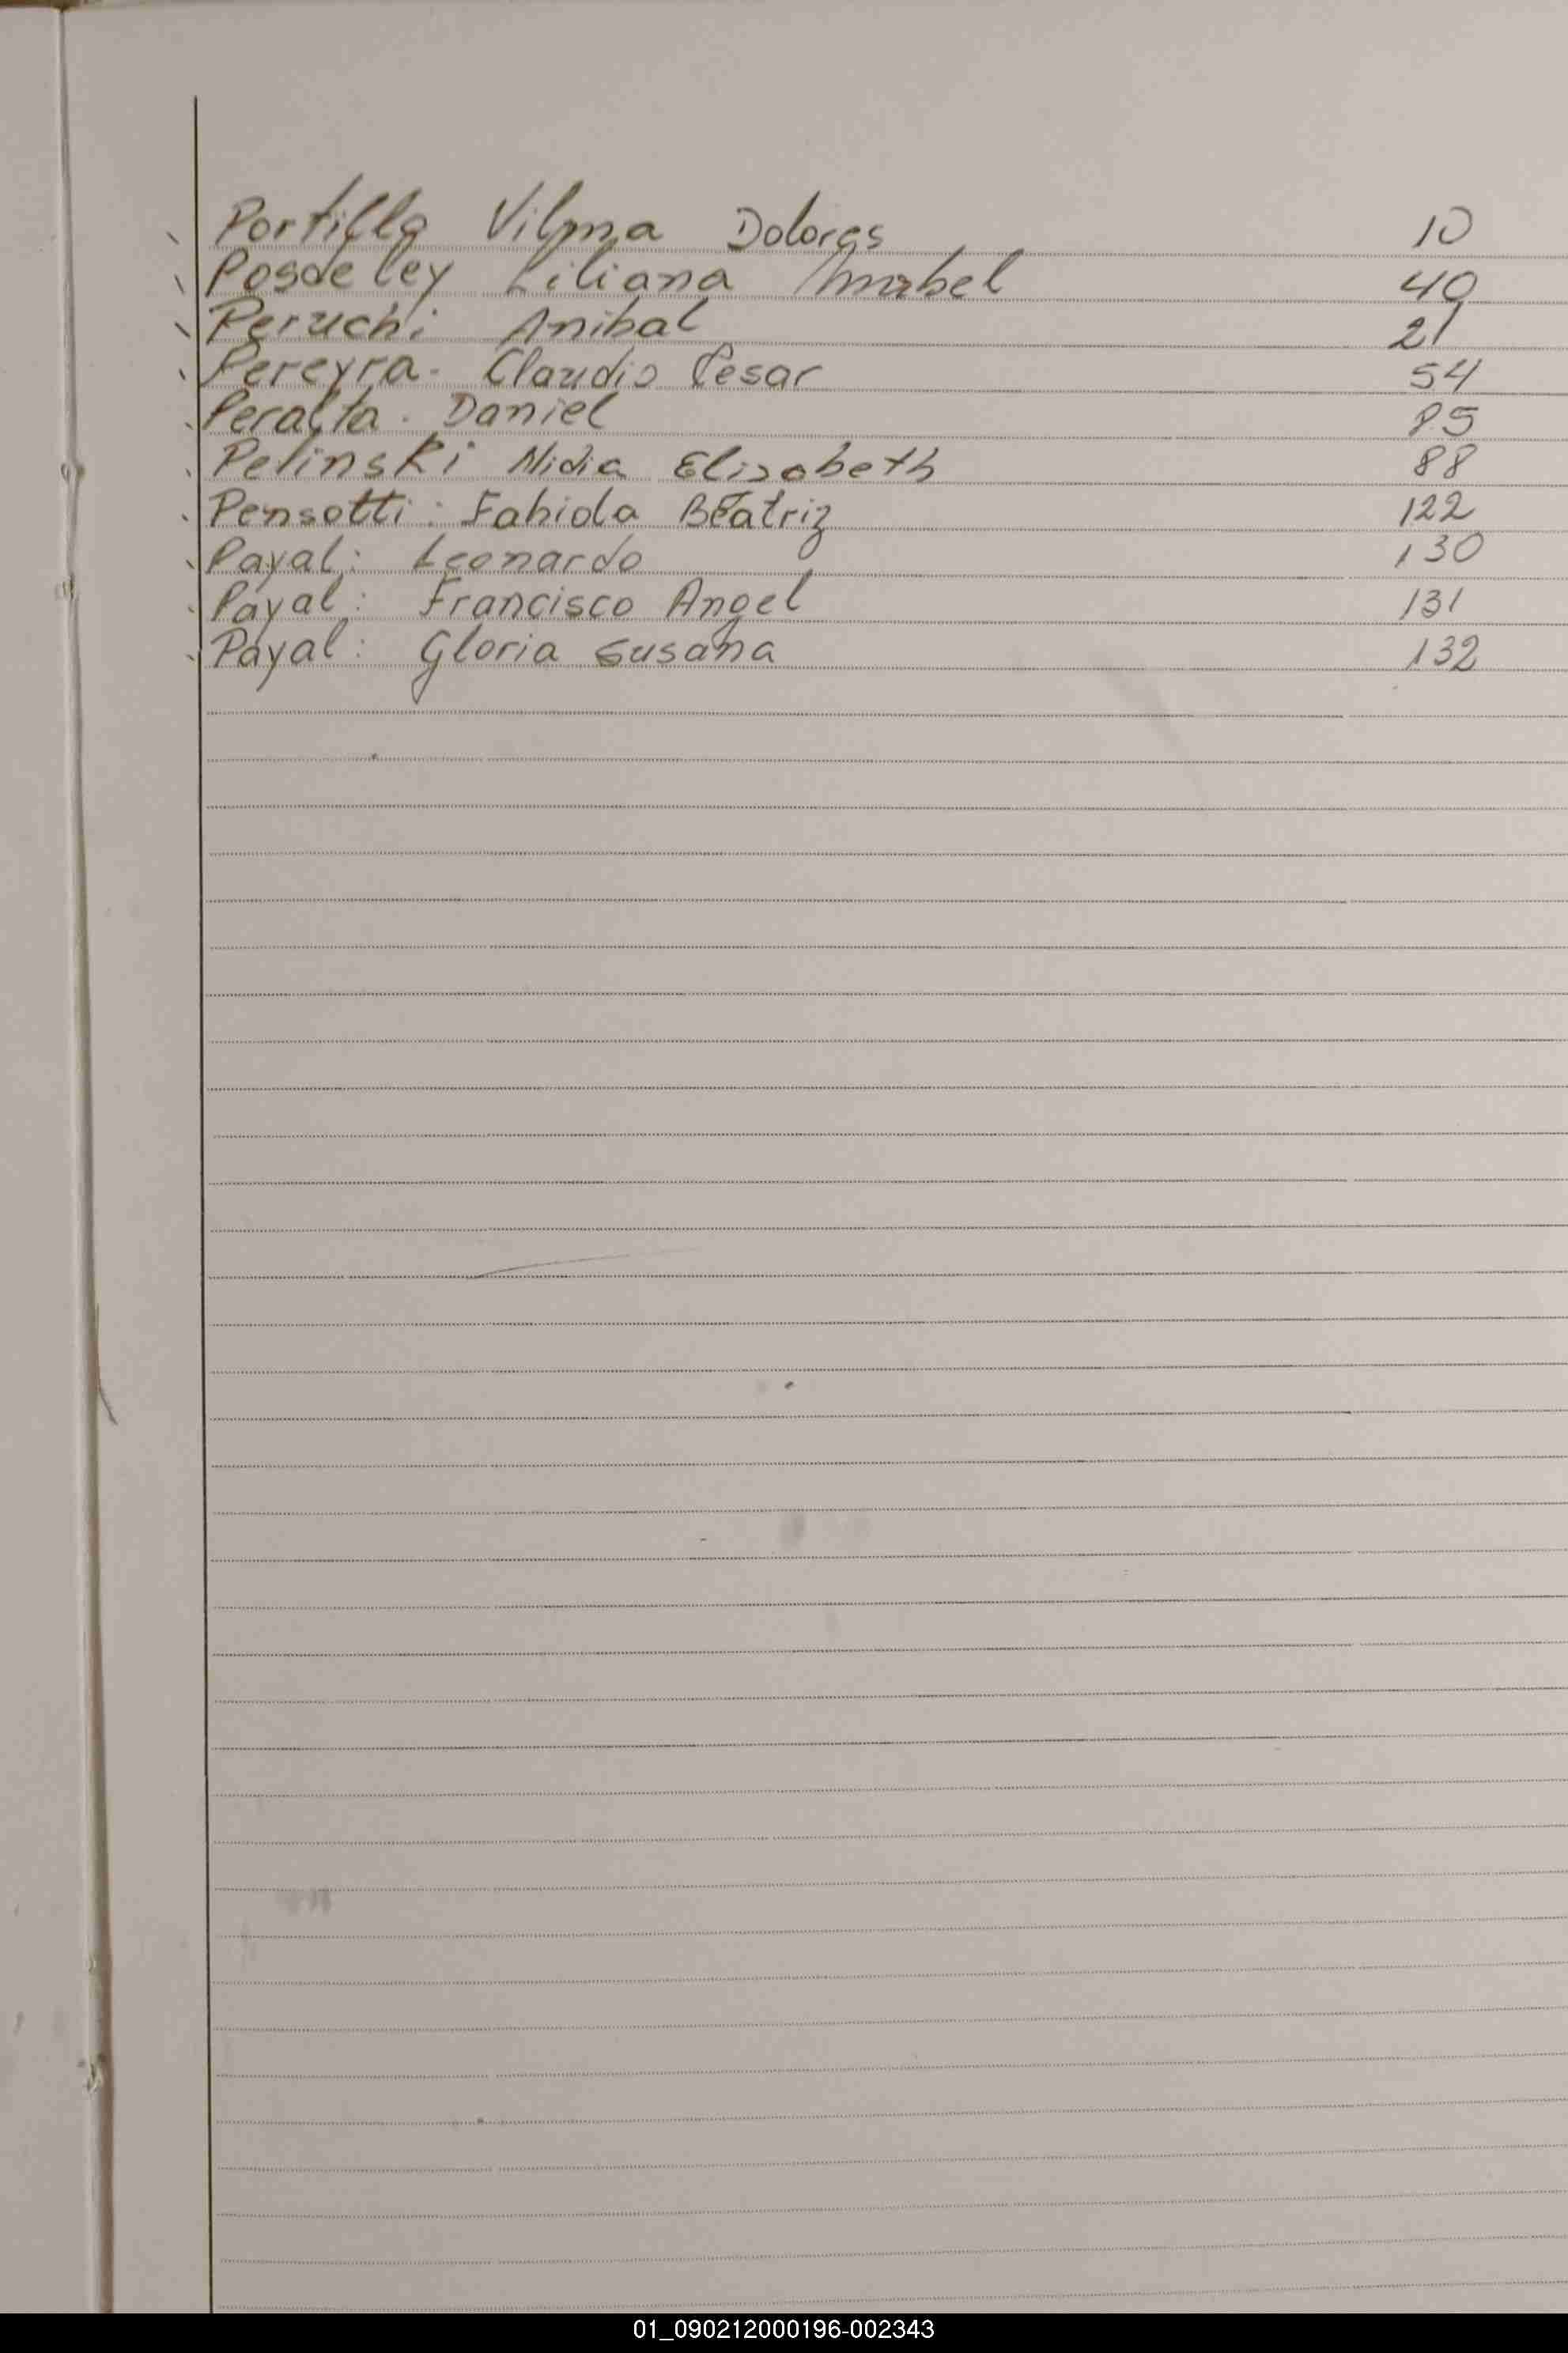 Portillo Vilma Dolores 10
Posdeley Liliana Mabel 40
Peruchi Anibal 21
Pereyra. Claudio Cesar 54
Peralta. Daniel 85
Pelinski Nidia Elizabeth 88
Pensotti: Fabiola Beatriz 122
Payal: Leonardo 130
Payal: Francisco Angel 131
Payal: Gloria Susana 132
01_090212000196-002343